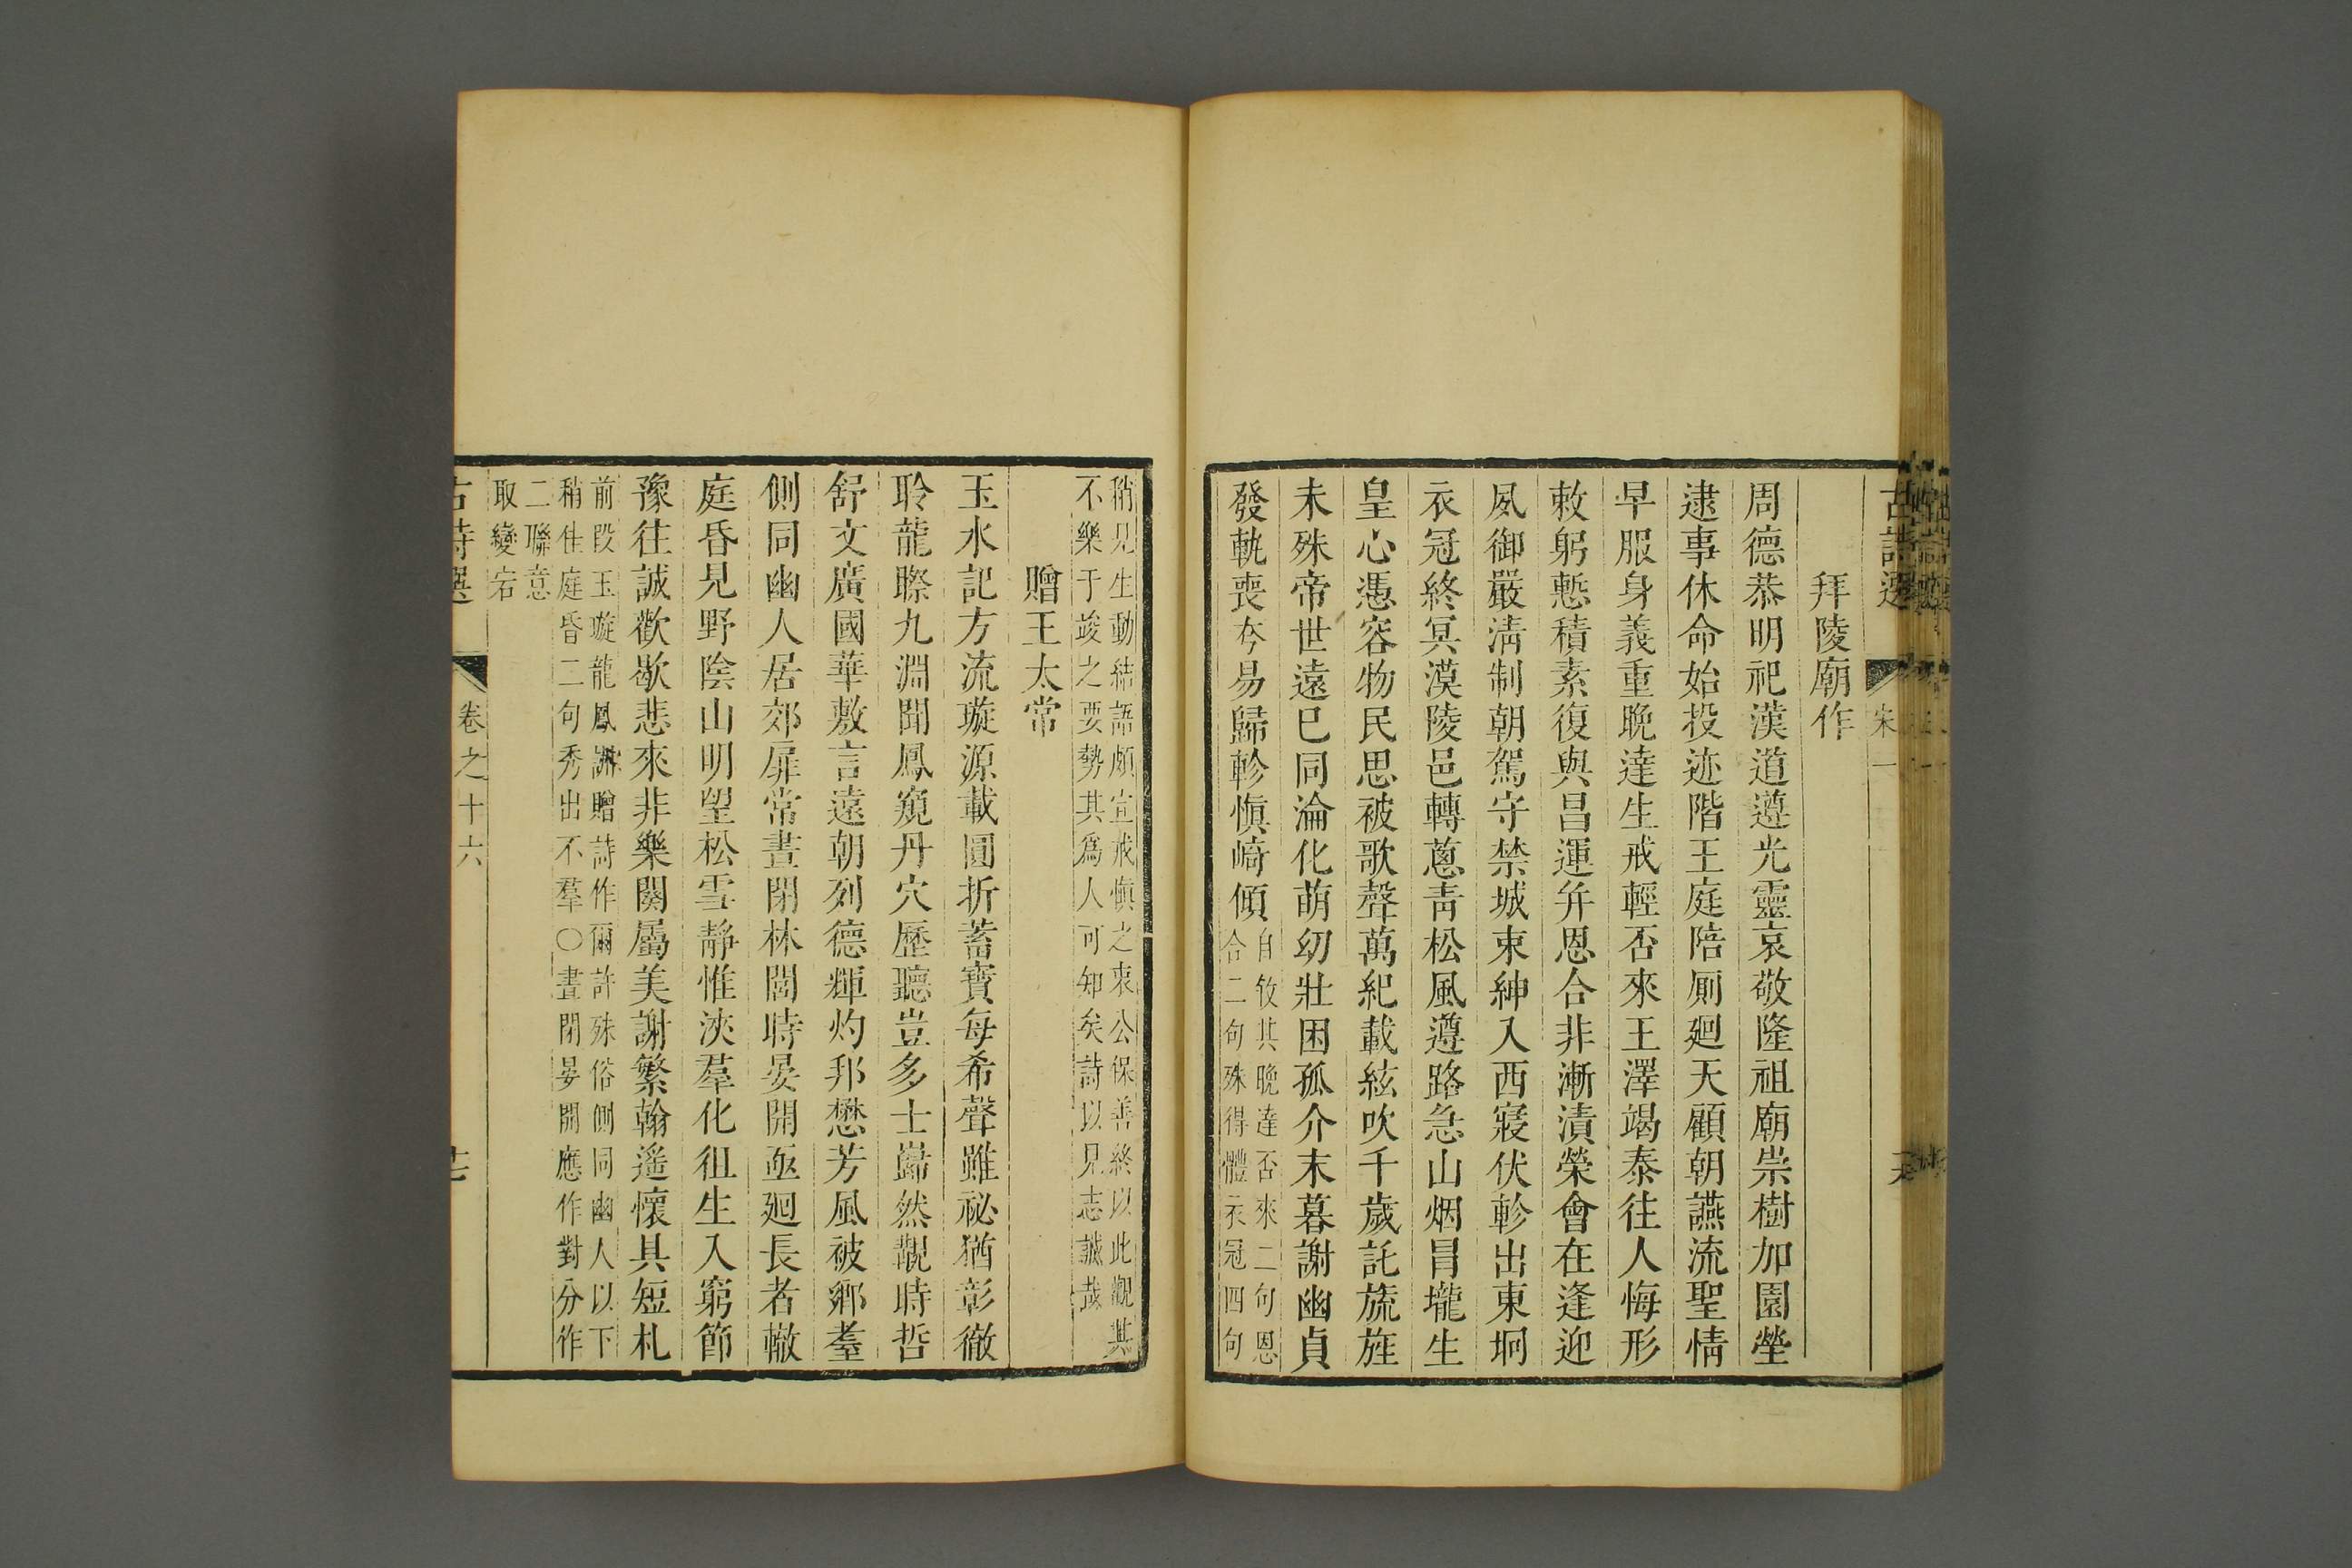 古詩選 宋一
拜陵廟作
周德恭明祀漢道遵光靈哀敬隆祖廟崇樹加園塋
逮事休命始投迹階王庭陪厠廻天顧朝讌流聖情
早服身義重晩達生戒輕否來王澤竭泰往人悔形
敕躬慙積素復與昌運幷恩合非漸漬榮會在逢迎
夙御嚴淸制朝駕守禁城束紳入西寢伏軫出東坰
衣冠終冥漠陵邑轉蔥靑松風遵路急山烟冒壠生
皇心憑容物民思被歌聲萬紀載絃吹千歲託旒旌
未殊帝世遠已同淪化萌幼壯困孤介末暮謝幽貞
發軌喪夷易歸軫愼崎傾
自攸其晚達否來二句恩
合二句殊得體衣冠四句
稍見生動結語頗宜戒愼之衷公保善終以此觀其
不樂于竣之要勢其爲人可知矣詩以見志誠哉
贈王太常
玉水記方流璇源載圓折蓄寶每希聲雖祕猶彰徹
聆龍睽九淵聞鳳窺丹穴歷聽豈多士巋然覯時哲
舒文廣國華敷言遠朝列德輝灼邦懋芳風被鄉耋
側同幽人居郊扉常晝閉林閭時晏開亟廻長者轍
庭昏見野陰山明望松雪靜惟浹羣化徂生入窮節
豫往誠歡歇悲來非樂闋屬美謝繁翰遙懷具短札
前段玉璇龍鳳謝贈詩作爾許殊俗側同幽人以下
稍佳庭昏二句秀出不羣〇晝閉晏開應作對分作
二聯意
取變宕
古詩選 卷之十六